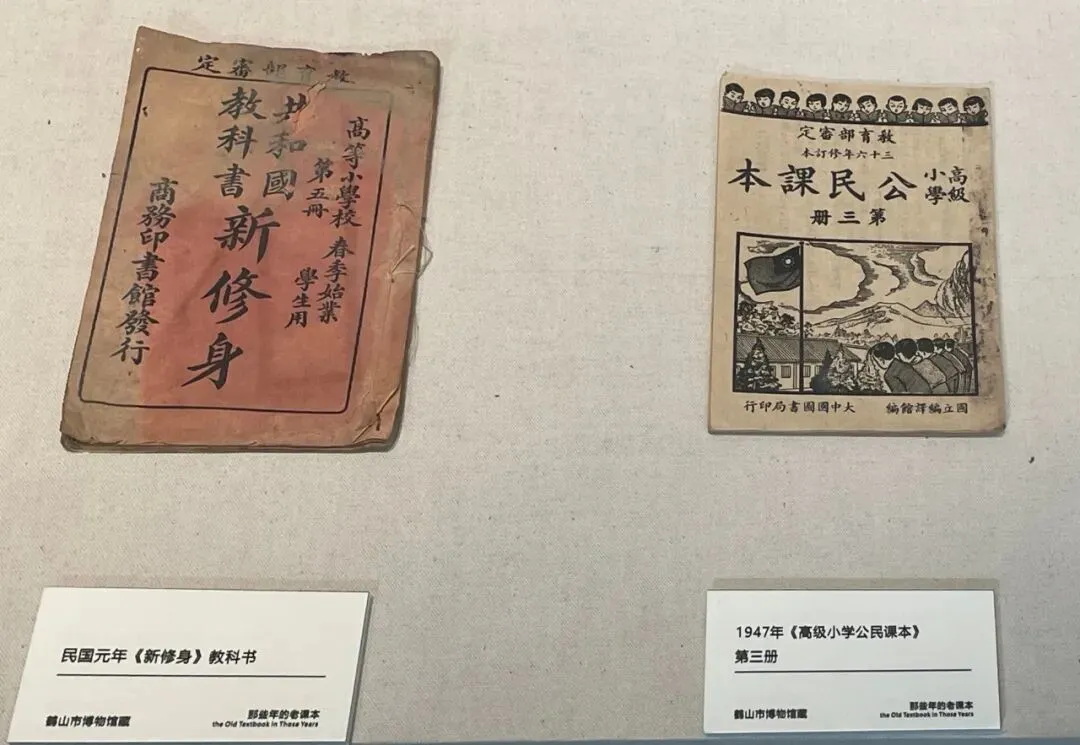 教育部審定
高等小學校 春季始業
第五冊 學生用
共和國
教科書新修身
商務印書館發行
教育部審定
三十六年修訂本
高級小學公民課本
第三冊
國立編譯館編
大中國圖書局印行
民国元年《新修身》教科书
鹤山市博物馆藏
那些年的老课本
the Old Textbook in Those Years
1947年《高级小学公民课本》
第三册
鹤山市博物馆藏
那些年的老课本
the Old Textbook in Those Years